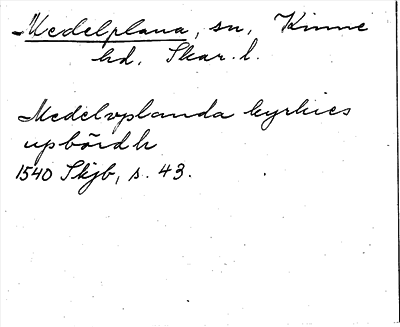 Medelplana, sn, Kinne
hd. Skar. l.
Medelvplanda kyrkies
upbördh
1540 Skjb, s. 43.